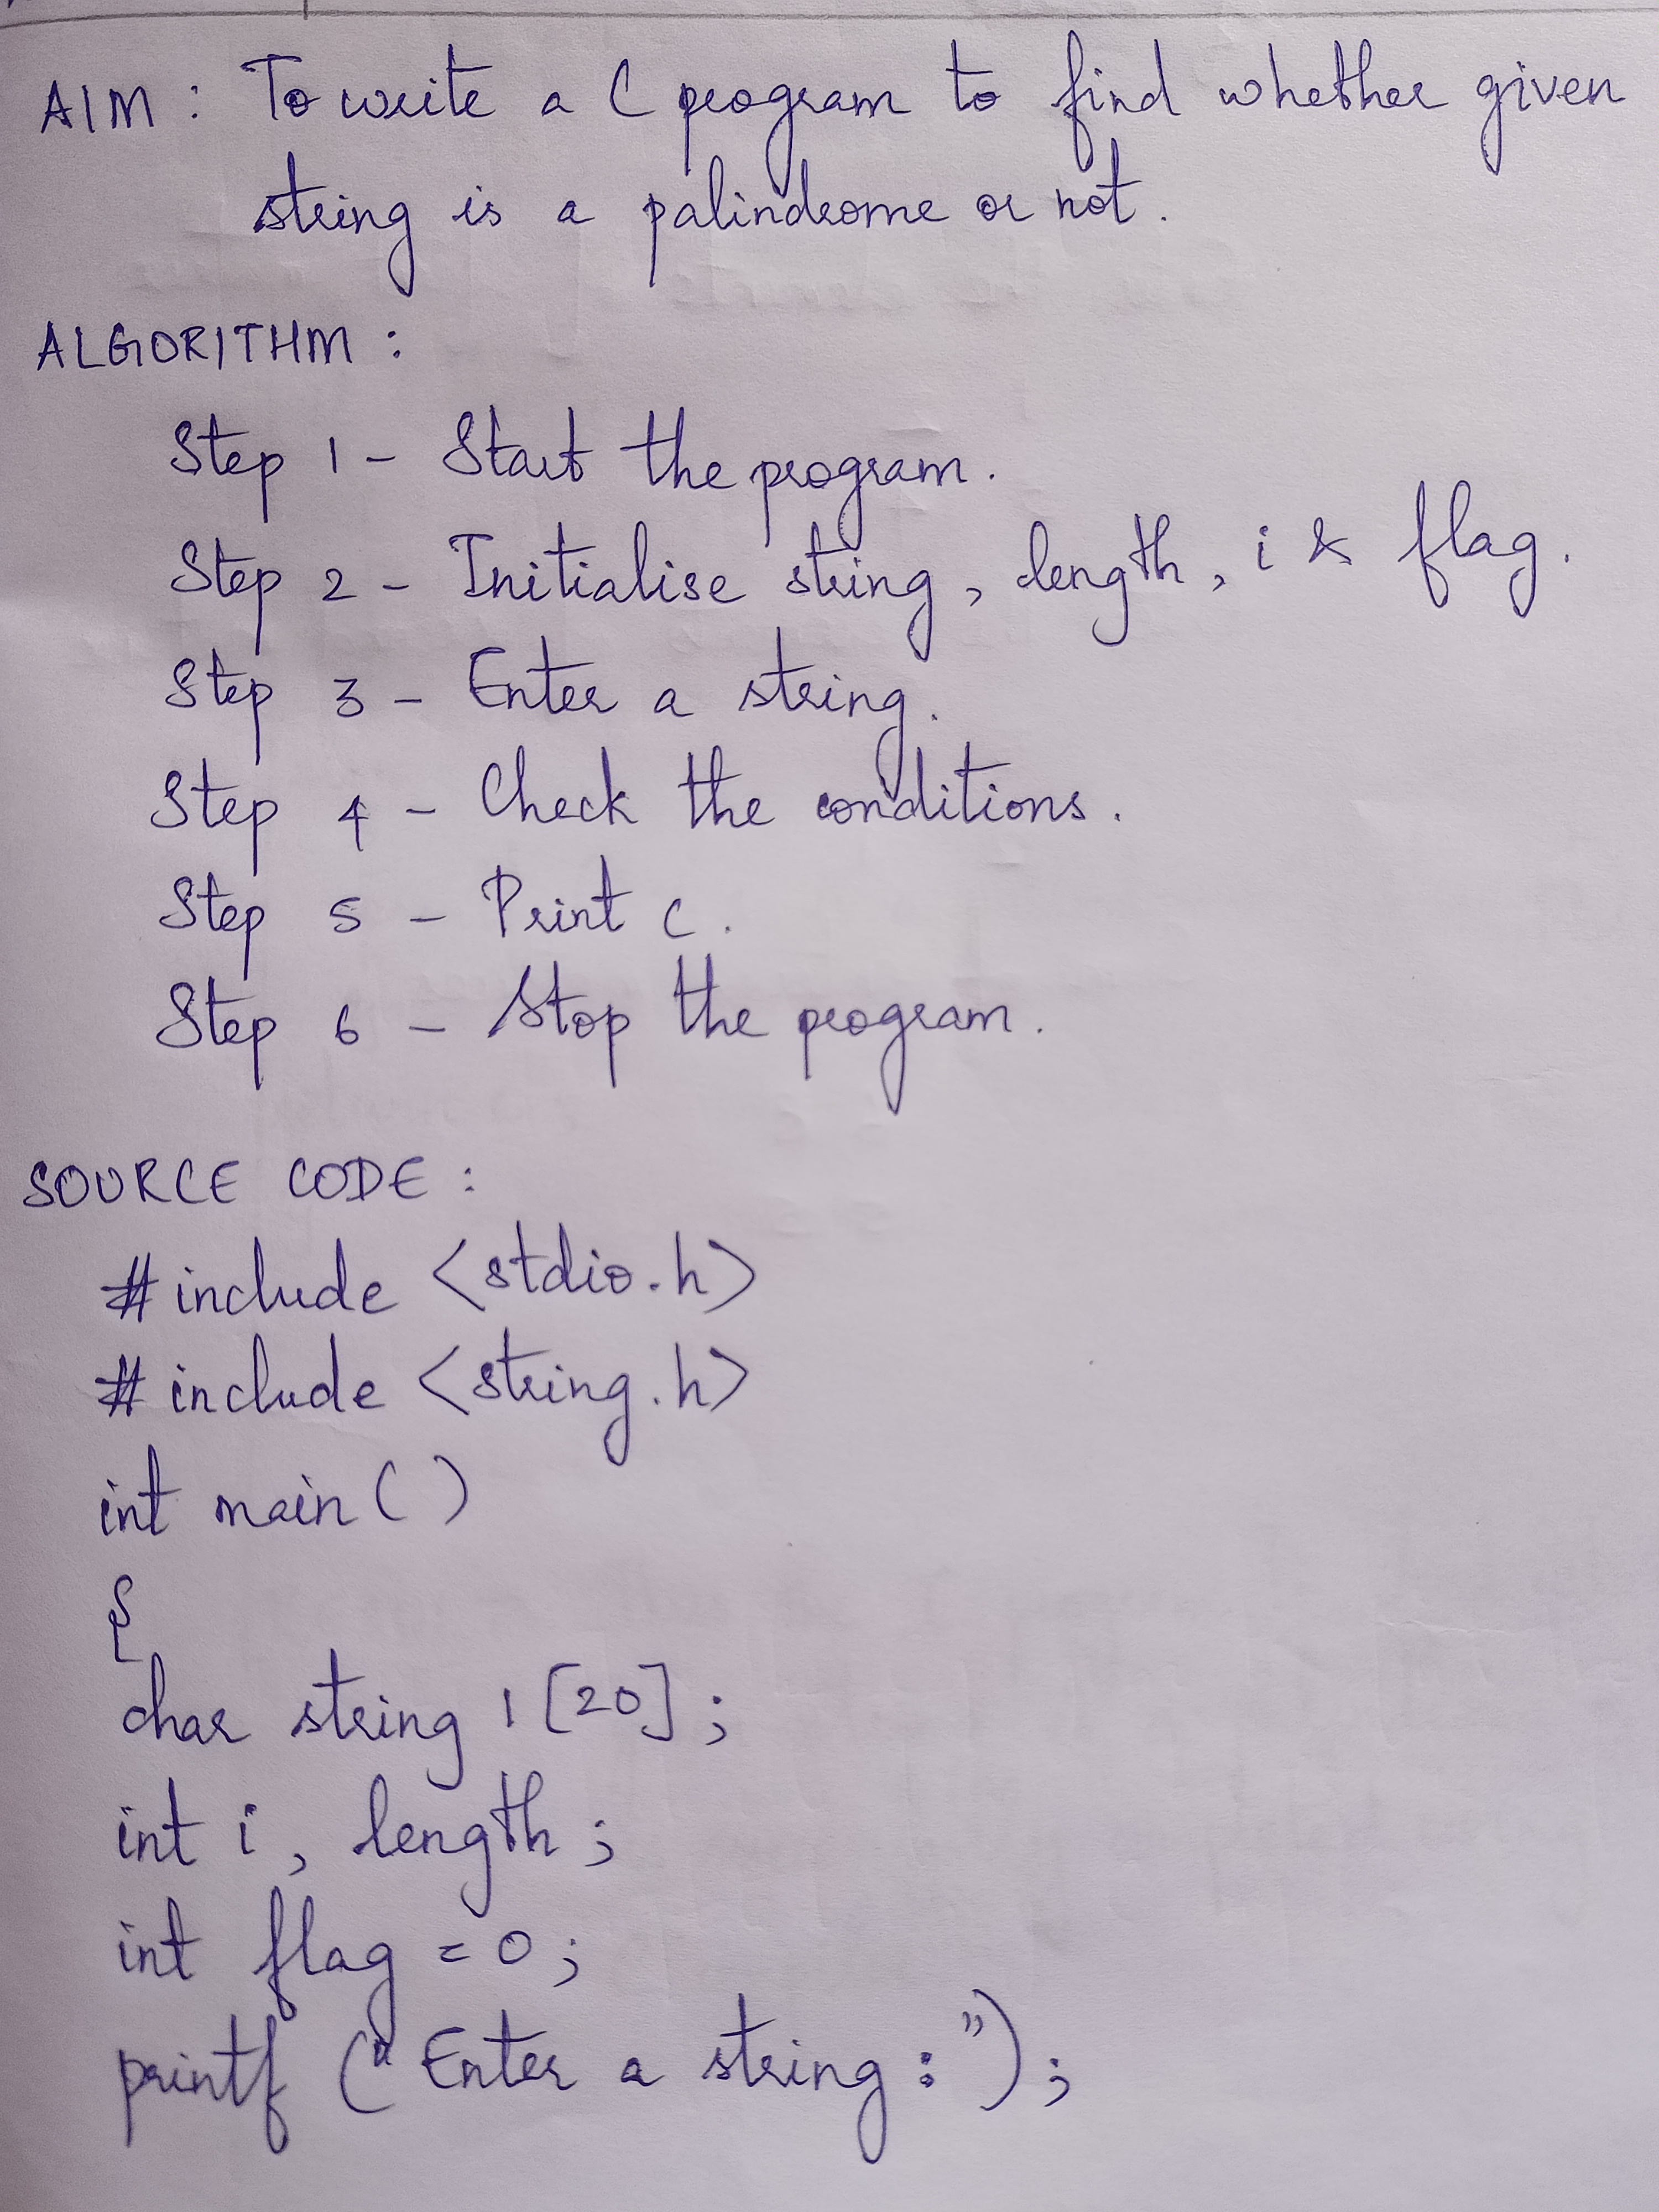 AIM : To write a C program to find whether given
string is a palindrome or not.
ALGORITHM :
Step 1 - Start the program.
Step 2 - Initialise string, length, i & flag.
Step 3 - Enter a string.
Step 4 - Check the conditions.
Step 5 - Print c.
Step 6 - Stop the program.
SOURCE CODE :
#include <stdio.h>
#include <string.h>
int main ( )
{
char string 1 [20] ;
int i, length ;
int flag = 0 ;
printf (" Enter a string : ") ;